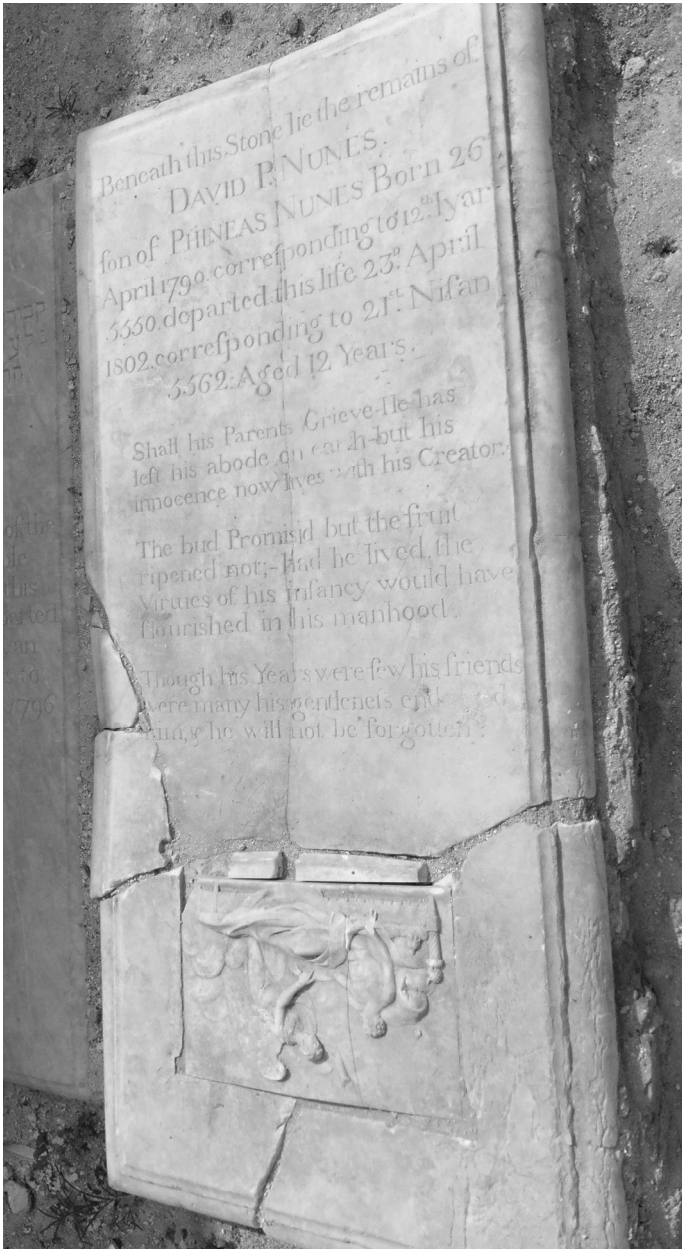 Beneath this Stone lie the remains of
DAVID P. NUNES,
ſon of PHINEAS NUNES Born 26
April 1790. correſponding to 12th. Iyar
5550. departed this life 23d. April
1802. correſponding to 21st. Niſan
5562: Aged 12 Years.
Shall his Parents Grieve-He has
left his abode on earth-but his
innocence now lives with his Creator.
The bud Promisid but the fruit
ripened not;-Had he lived, the
Virtues of his infancy would have
flourished in his manhood.
Though his Years were few his friends
were many his gentleneſs endeared
him, & he will not be forgotten.
of the
this
parted
to
1796